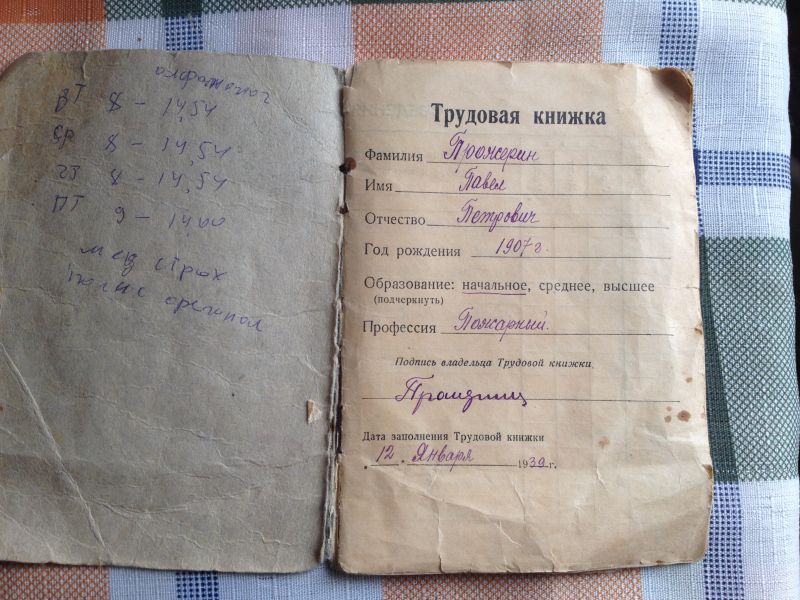 ВТ 8 - 14,54
СР 8 - 14,54
ЧТ 8 - 14,54
ПТ 9 - 14,00
мед страх
Трудовая книжка
Фамилия Прожерин
Имя Павел
Отчество Петрович
Год рождения 1907 г.
Образование: начальное, среднее, высшее
(подчеркнуть)
Профессия Пожарный.
Подпись владельца Трудовой книжки
Дата заполнения Трудовой книжки
12. Января 1939 г.